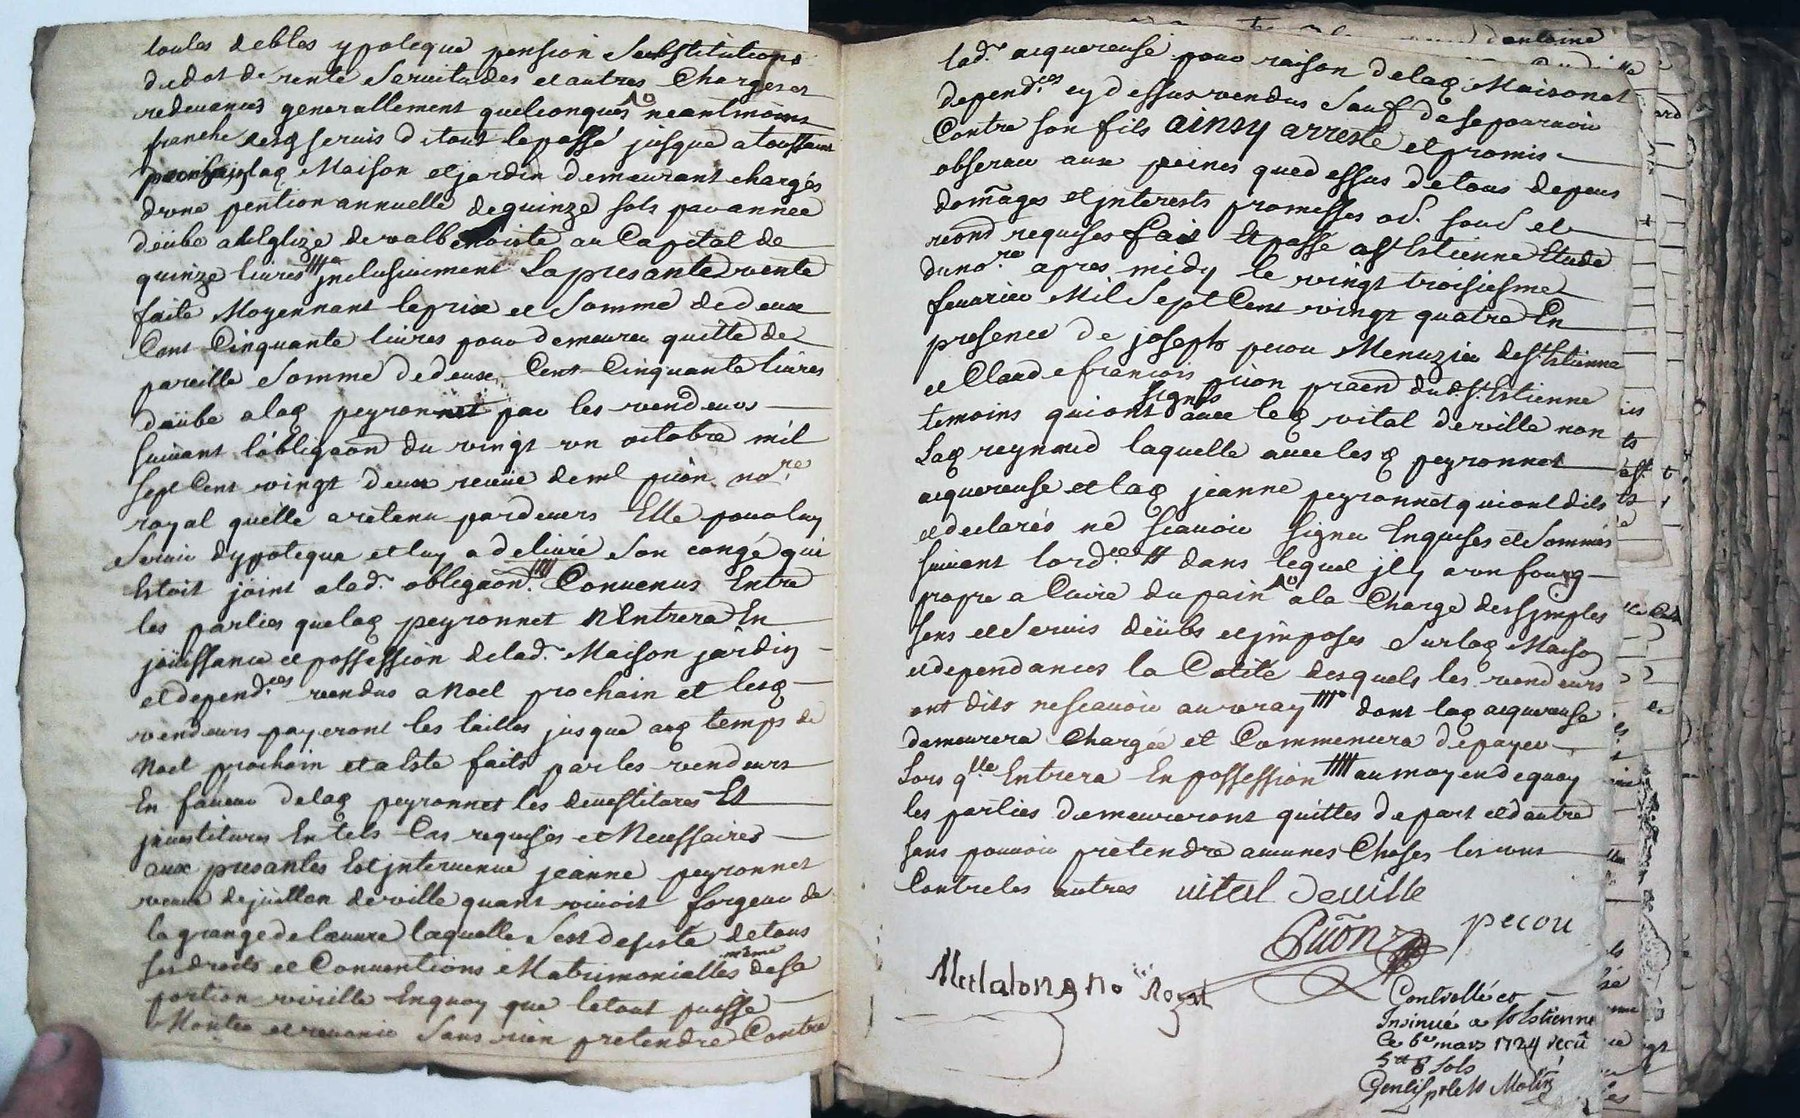 toutes debtes ypoteque pension substitutions
dudot de rente servitudes et autres charges et
redevances generallement quelconques neantmoins
franche desq servis detout le passé jusque a toussaint
prochain laq Maison et jardin demeurant chargés
dune pention annuelle de quinze sols par année
deübe a leglize de valbenoiste au Capital de
quinze livres inclusivement La presante vente
faite Moyennant le prix et somme de deux
Cent Cinquante livres pour demeurer quitte de
pareille somme de deux Cent Cinquante livres
deübe a laq peyronnet par les vendeurs
suivant l'obligaon du vingt un octobre mil
sept Cent vingt deux receüe de mt pion nore
royal quelle a retenu pardevers Elle pour luy
servir dypoteque et luy a delivré son congé qui
Estoit joint a lad. obligaon. Convenus Entre
les parties que laq peyronnet N Entrera En
joüissance et possession de lad. Maison jardin
et depend.ces vendus a Noel prochain et lesq
vendeurs payeront les tailles jusque auq temps de
Noel prochain et a Esté faits par les vendeurs
En faveur de laq peyronnet les devestitures Et
jnvestitures En tels Cas requises et Necessaires
aux presantes Est jntervenue jeanne peyronnet
veuve de jullien deville quant vivoit forgeur de
la grange de lœuvre laquelle sest desisté de tous
ses droits et Conventions Matrimonialles même de sa
portion virille Enquoy que le tout puisse
Monter et revenir sans rien pretendre Contre
lad. acquereuse pour raison de laq Maison et
depend.ces cy dessus vendus sauf de se pourvoir
Contre son fils ainsy arresté et promis
observer aux peines que dessus de tous depens
domages et jnterests promesses ob. soub et
renond requises fait Et passé a St Estienne Etude
du nore apres midy le vingt troisiesme
fevrier Mil Sept Cent vingt quatre En
presence de joseph pecou Menuzier de St Estienne
et Claude francois pion praend dud. St. Estienne
temoins qui ont signés avec leq vital deville non
Laq reynaud laquelle avec lesq peyronnet
acquereuse et laq jeanne peyronnet qui ont dits
et declarés ne scavoir signer Enquises et sommés
suivant lord.ces dans lequel jl y a un fourg
propre a Cuire du pain a la Charge des simples
sens et servis deübs et jmposés sur laq Maison
et dependances la Cotité desquels les vendeurs
ont dits ne scavoir au vray dont laq acquereuse
demeurera Chargée et Commencera de payer
Lors qlle Entrera En possession au moyen de quoy
les parties demeureront quittes de part et dautre
sans pouvoir pretendre aucunes Choses les uns
Contre les autres vital deville
pecou
Pion
royal
Controllé et
Insinué a St Estienne
Ce 6e mars 1724 reçu
sols